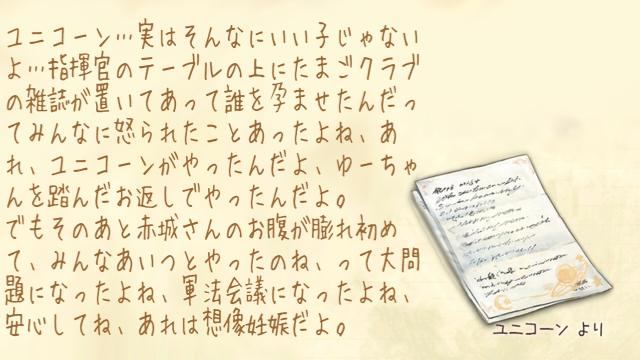 ユニコーン…実はそんなにいい子じゃない
よ…指揮官のテーブルの上にたまごクラブ
の雑誌が置いてあって誰を孕ませたんだっ
てみんなに怒られたことあったよね、あ
れ、ユニコーンがやったんだよ、ゆーちゃ
んを踏んだお返しでやったんだよ。
でもそのあと赤城さんのお腹が膨れ初め
て、みんなあいつとやったのね、って大問
題になったよね、軍法会議になったよね、
安心してね、あれは想像妊娠だよ。
ユニコーン より